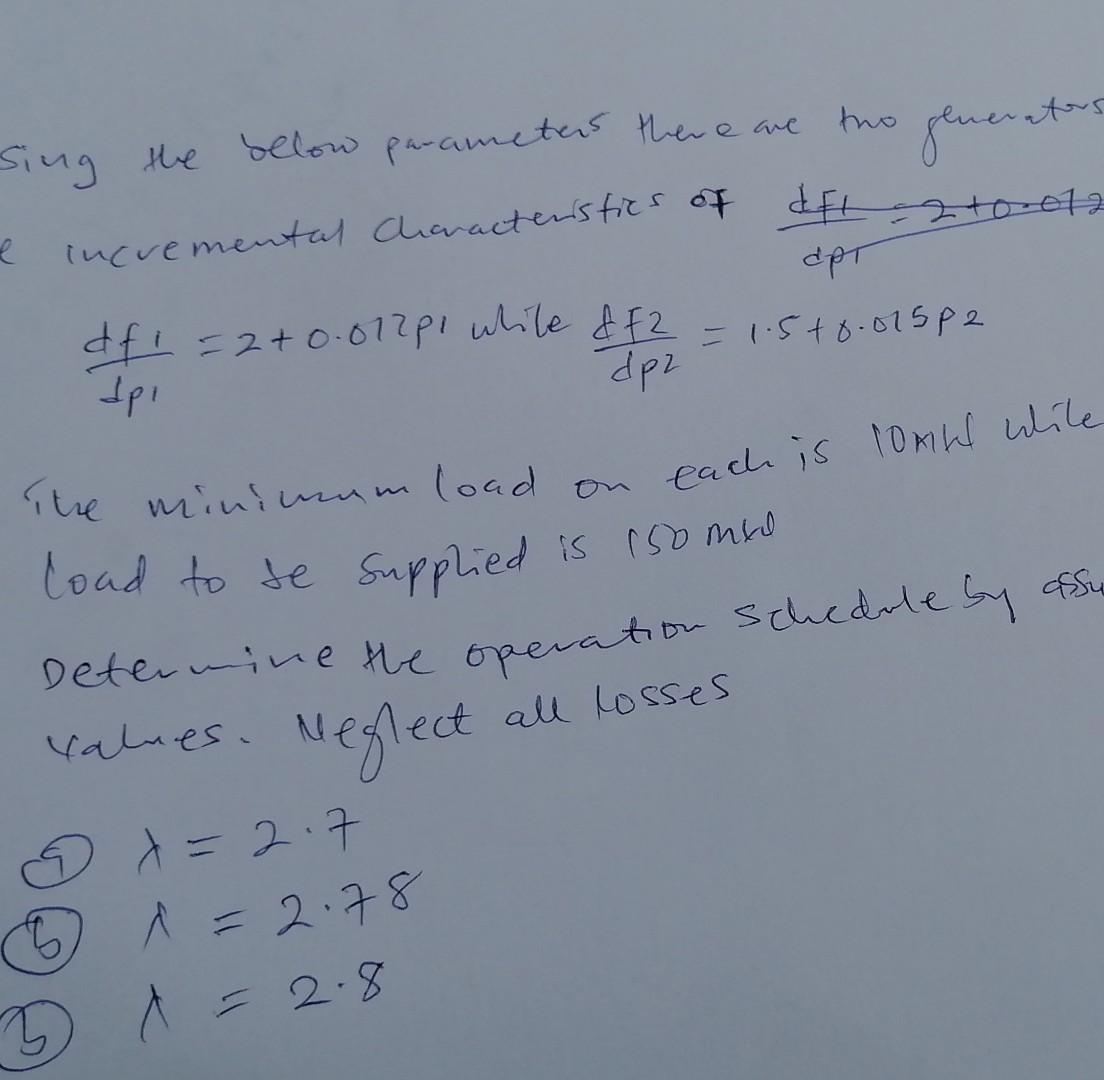 sing the below parameters there are two generators
e incremental characteristics of dF1/dp1 = 2+0.012
df1/dp1 = 2+0.012p1 while dF2/dp2 = 1.5+0.015p2
The minimum load on each is 10MW while
load to be supplied is 150MW
Determine the operation schedule by assu
values. Neglect all losses
a λ = 2.7
b λ = 2.78
λ = 2.8